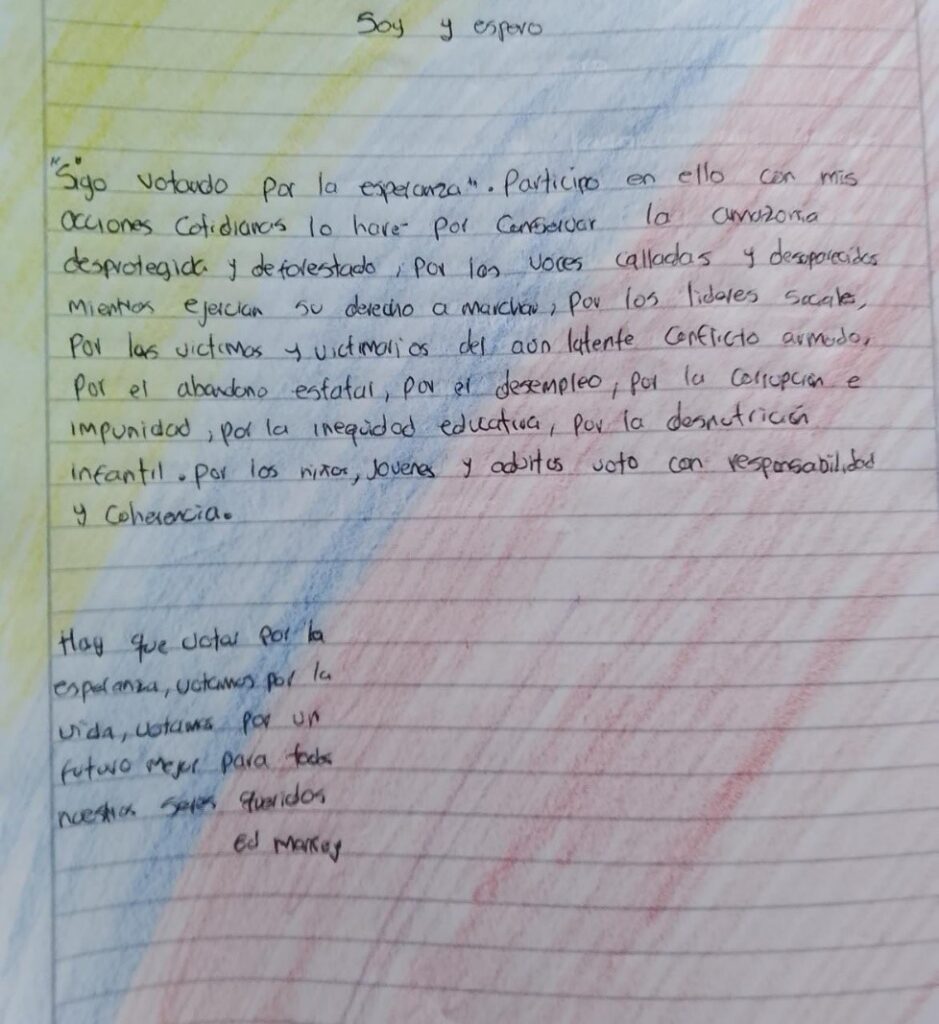 Soy y espero
"Sigo votando por la esperanza". Participo en ello con mis
acciones cotidianas lo hare por conservar la amazonia
desprotegida y deforestado, por las voces calladas y desaparecidas
mientras ejercian su derecho a marchar, por los lideres sociales,
Por las victimas y victimarios del aún latente conflicto armado,
Por el abandono estatal, por el desempleo, por la corrupción e
impunidad, por la inequidad educativa, por la desnutrición
infantil. por los niños, jovenes y adultos voto con responsabilidad
y coherencia.
Hay que votar por la
esperanza, votamos por la
vida, votamos por un
futuro mejor para todos
nuestros seres queridos
Ed Markey